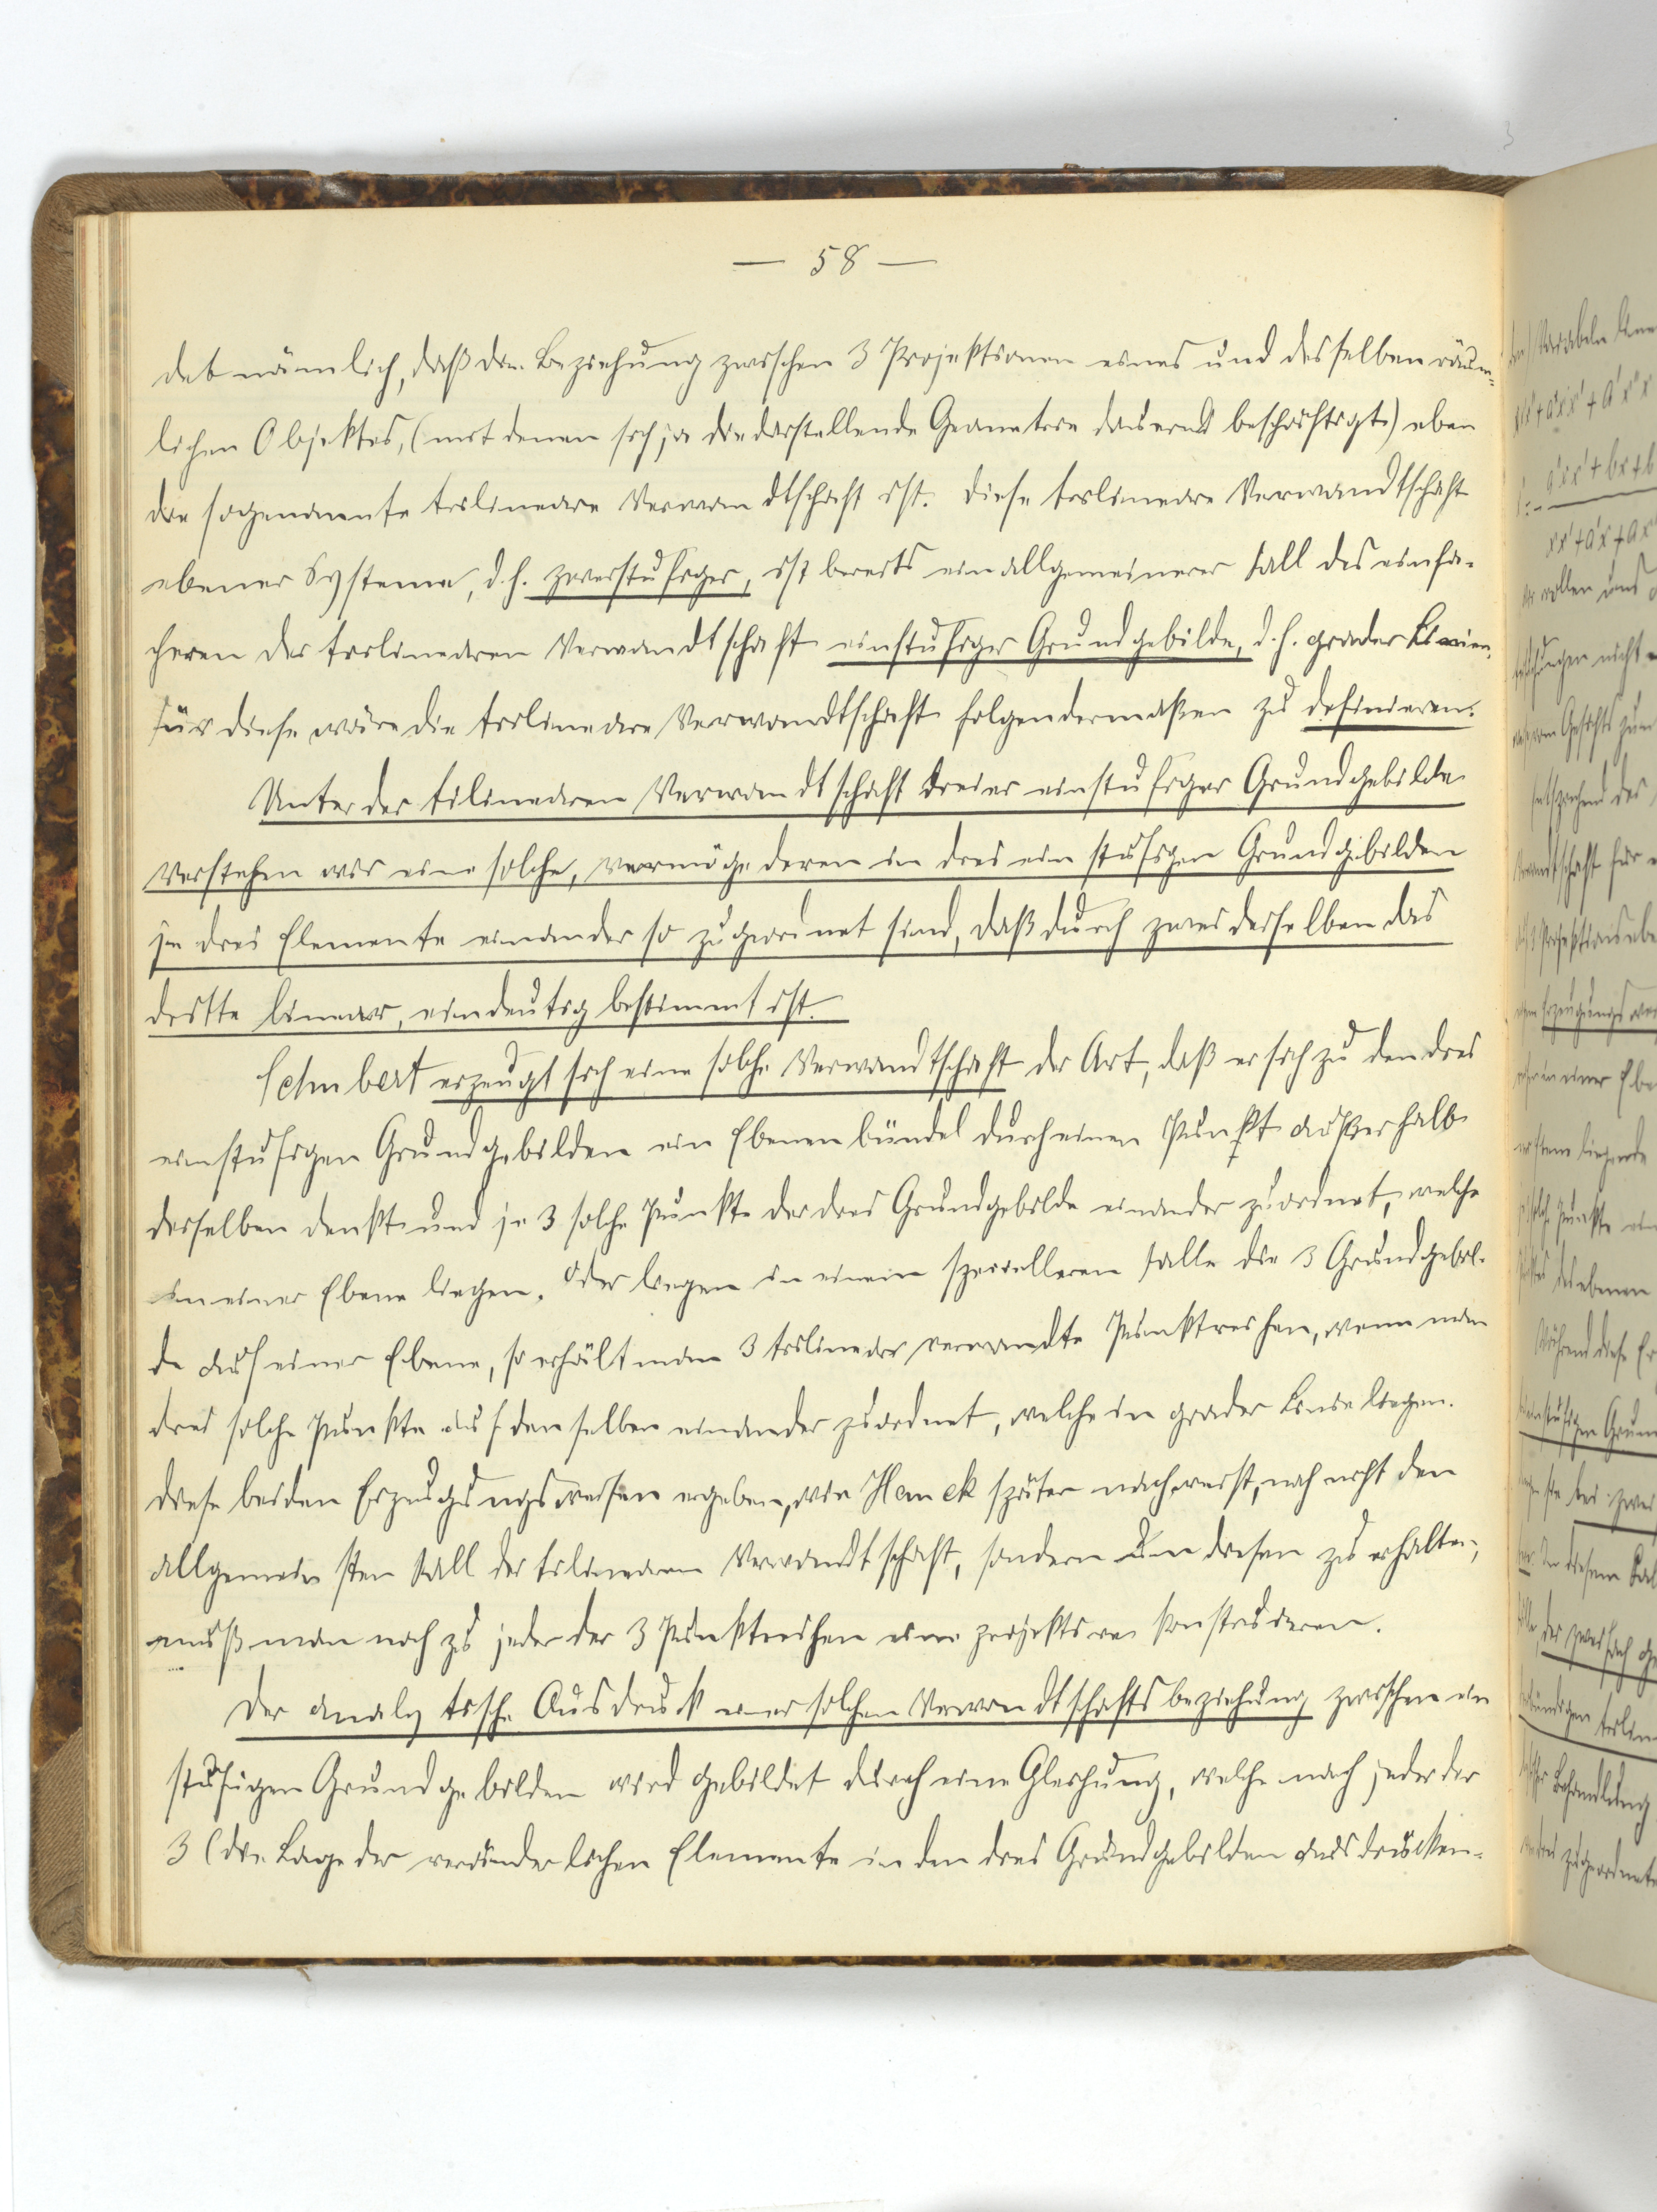 — 58 —
det nämlich, daß die Beziehung zwischen 3 Projektionen eines und desselben räum-
lichen Objektes, (mit denen sich ja die darstellende Geometrie dauernd beschäftigt) eben
die sogenannte trilineare Verwandtschaft ist. Diese trilineare Verwandtschaft
ebener Systeme, d.h. zweistufiger, ist bereits ein allgemeinerer Fall des einfa-
cheren der trilinearen Verwandtschaft einstufiger Grundgebilde, d.h. grader Linien.
Für diese wäre die trilineare Verwandtschaft folgendermaßen zu definieren:
Unter der trilinearen Verwandtschaft dreier einstufiger Grundgebilde
verstehen wir eine solche, vermöge deren in drei einstufigen Grundgebilden
je drei Elemente einander so zugeordnet sind, daß durch zwei derselben das
dritte linear, eindeutig bestimmt ist.
Schubert erzeugt sich eine solche Verwandtschaft der Art, daß er sich zu den drei
einstufigen Grundgebilden ein Ebenenbündel durch einen Punkt außerhalb
derselben denkt und je 3 solche Punkte der drei Grundgebilde einander zuordnet, welche
in einer Ebene liegen. Oder liegen in einem specielleren Falle die 3 Grundgebil-
de auf einer Ebene, so erhält man 3 trilinear verwandte Punktreihen, wenn man
drei solche Punkte auf denselben einander zuordnet, welche in grader Linie liegen.
Diese beiden Erzeugungsweisen ergeben, wie Hauck später nachweist, noch nicht den
allgemeinsten Fall der trilinearen Verwandtschaft, sondern um diesen zu erhalten,
muß man noch zu jeder der 3 Punktreihen eine projektive konstruieren.
Der analytische Ausdruck einer solchen Verwandtschaftsbeziehung zwischen ein
stufigen Grundgebilden wird gebildet durch eine Gleichung, welche nach jeder der
3 (die Lage der veränderlichen Elemente in den drei Grundgebilden ausdrücken-